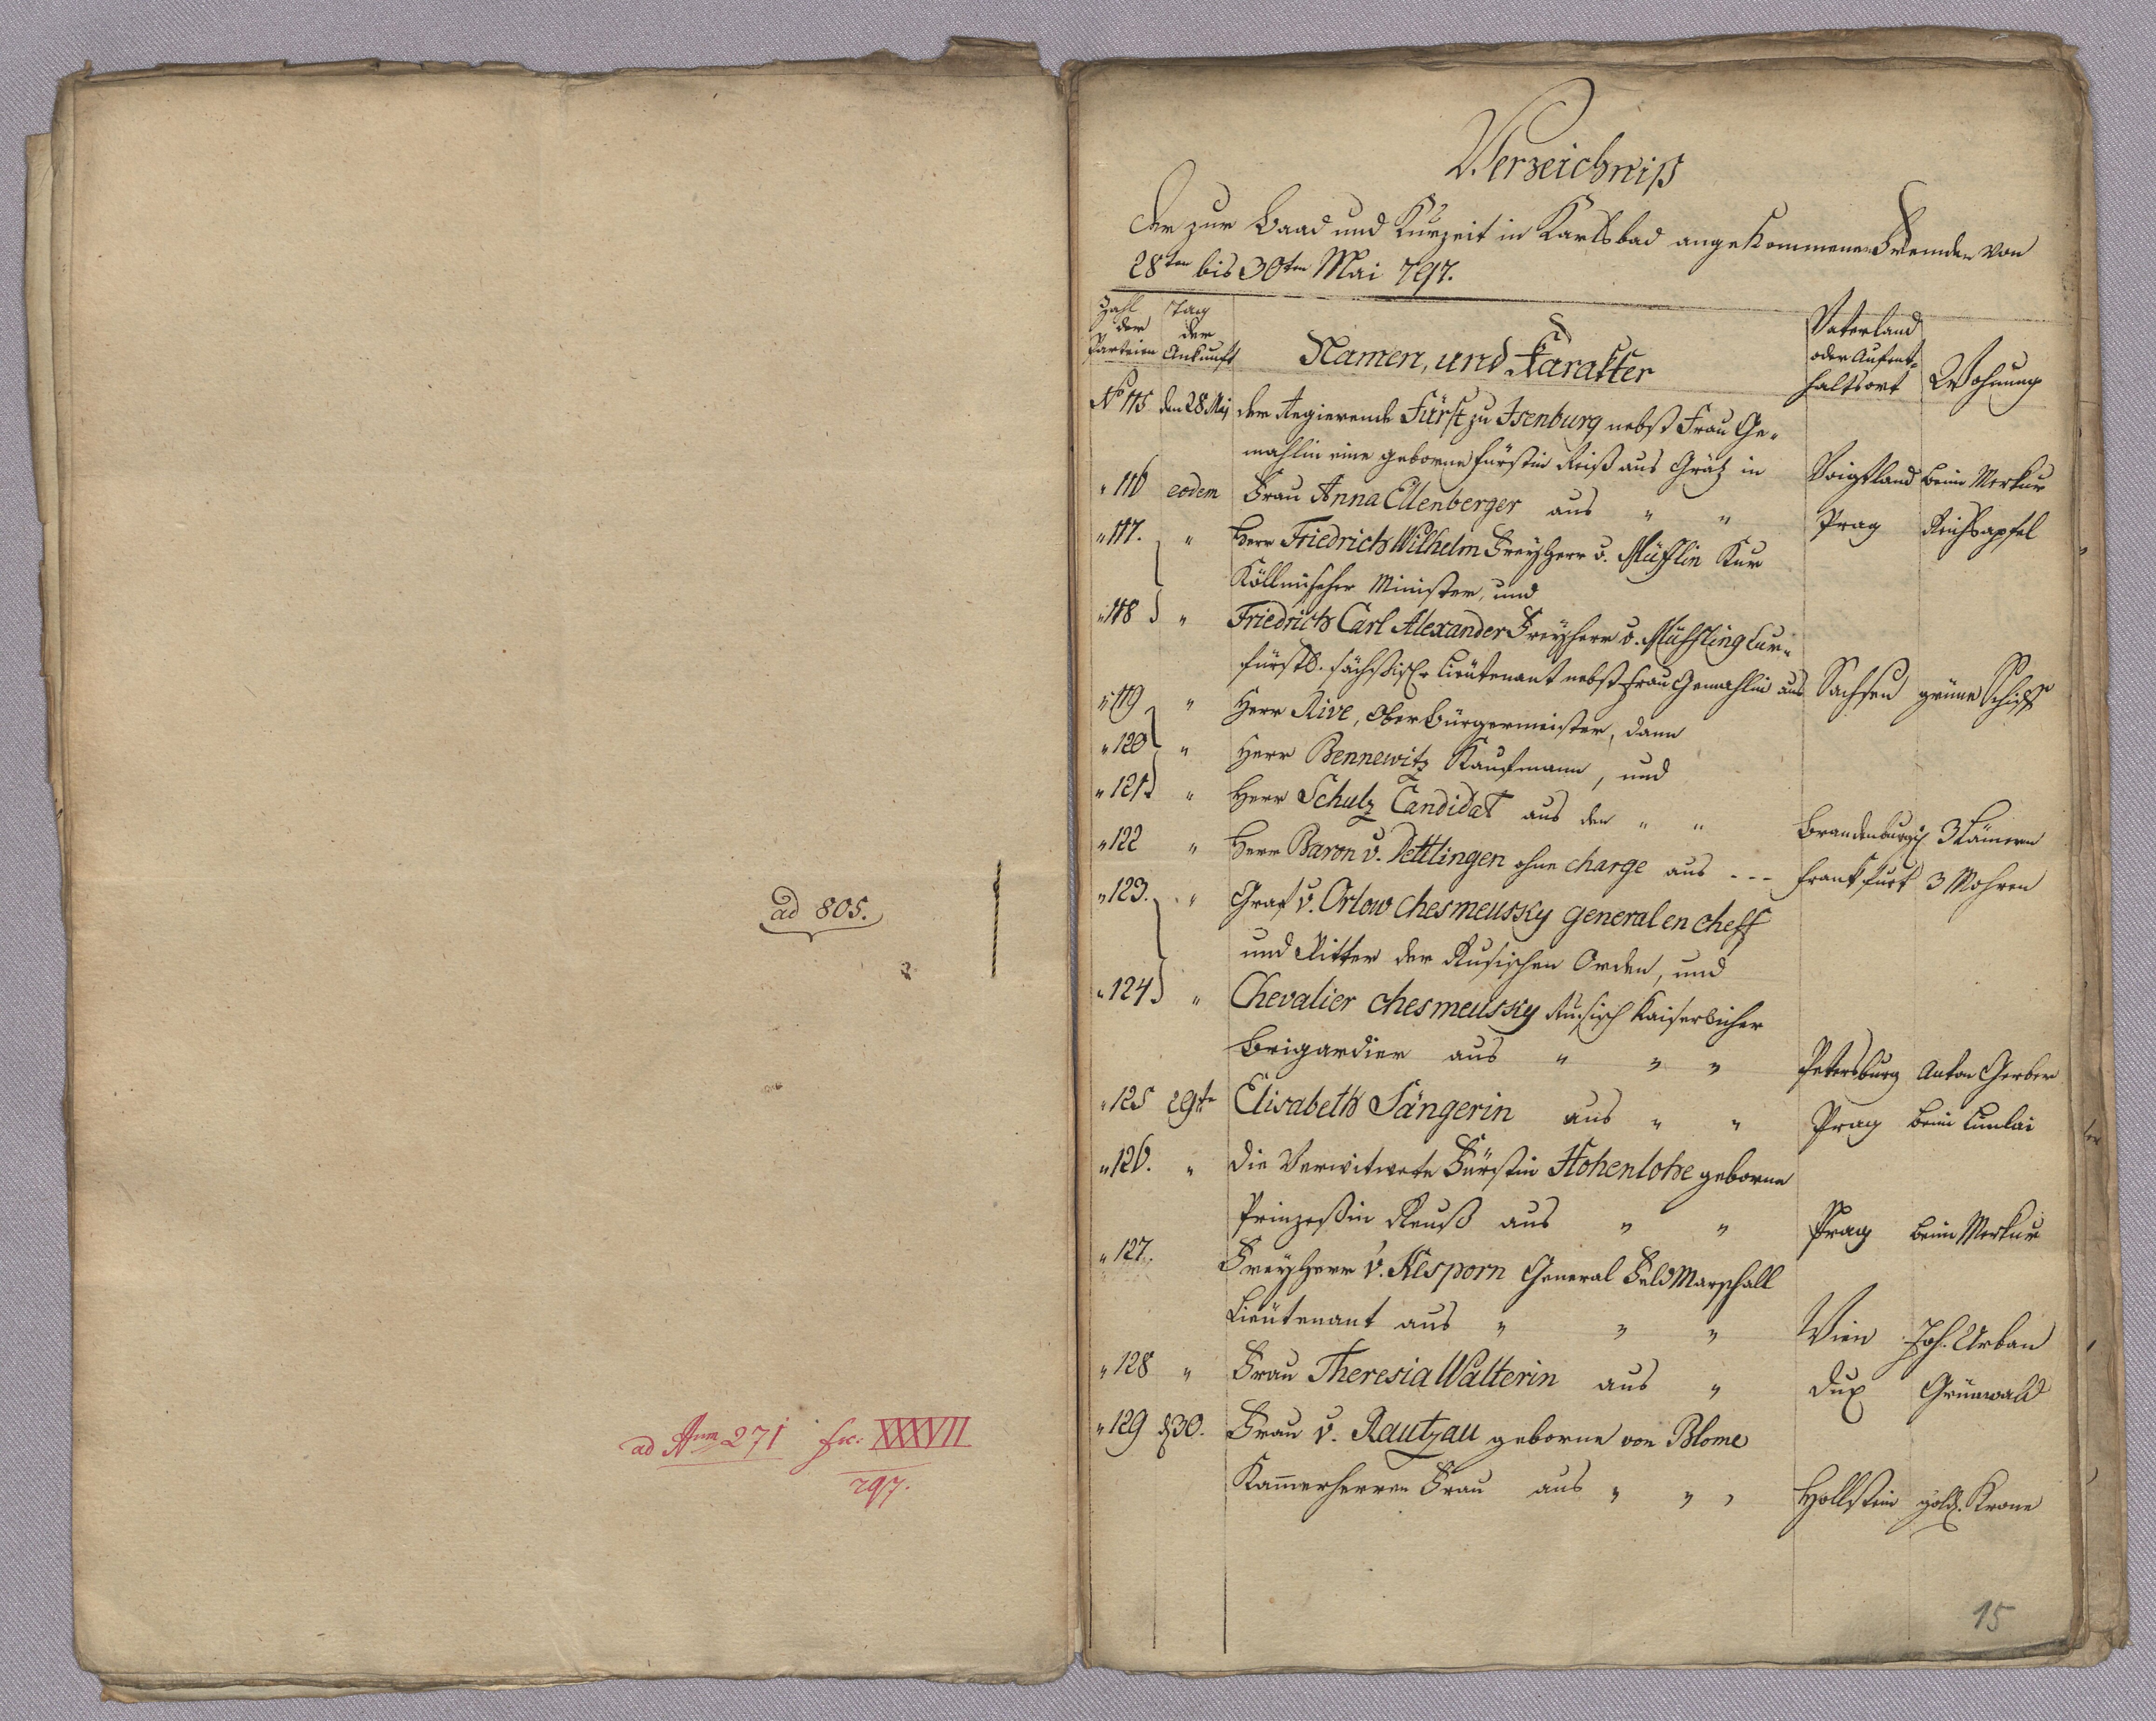 ad 805.
ad Num 271 fc: XXXVII
797.
Verzeichniß
der zur Baad und Kurzeit in Karlsbad angekommenen Fremden von
28ten bis 30ten Mai 797.
Zahl der Parteien | Tag der Ankunft | Namen, und Karakter | Vaterland oder Aufent-haltsort | Wohnung
No 115 den 28 Maj der Regierende Fürst zu Isenburg nebst Frau Ge-
mahlin eine geborne Fürstin Reiß aus Grätz in Voigtland beim Merkur
" 116 eodem Frau Anna Ellenberger aus " " Prag Reichsapfel
" 117. " Herr Friedrich Wilhelm Freyherr v. Müfflin Kur
Köllnischer Minister, und
" 118 " Friedrich Carl Alexander Freyherr v. Müffling Cur-
fürstl. sächsischer Lieutenant nebst Frau Gemahlin aus Sachsen grüne Schiff
" 119 " Herr Rive, Oberbürgermeister, dann
" 120 " Herr Bennewitz Kaufmann, und
" 121 " Herr Schulz Candidat aus den " " Brandenburgisch 3 Lämmern
" 122 " Herr Baron v. Dettlingen ohne charge aus --- Frankfurt 3 Mohren
" 123. " Graf v. Orlow chesmeussky general en cheff
und Ritter der Rusischen Orden, und
" 124 " Chevalier chesmeussky Rusisch Kaiserlicher
Brigardier aus " " " Petersburg Anton Gerber
" 125 29te Elisabeth Sängerin aus " " Prag beim
" 126. " die Verwitwete Fürstin Hohenlohe geborne
Prinzeßin Reuß aus " " Prag beim Merkur
" 127. Freyherr v. Kesporn General Feld Marschall
Lieutenant aus " " " Wien Joh. Urban
" 128 " Frau Theresia Walterin aus " Dux Grünwald
" 129 d 30. Frau v. Rautzau geborne von Blome
Kammerherren Frau aus " " " Hollstein gold. Krone
15